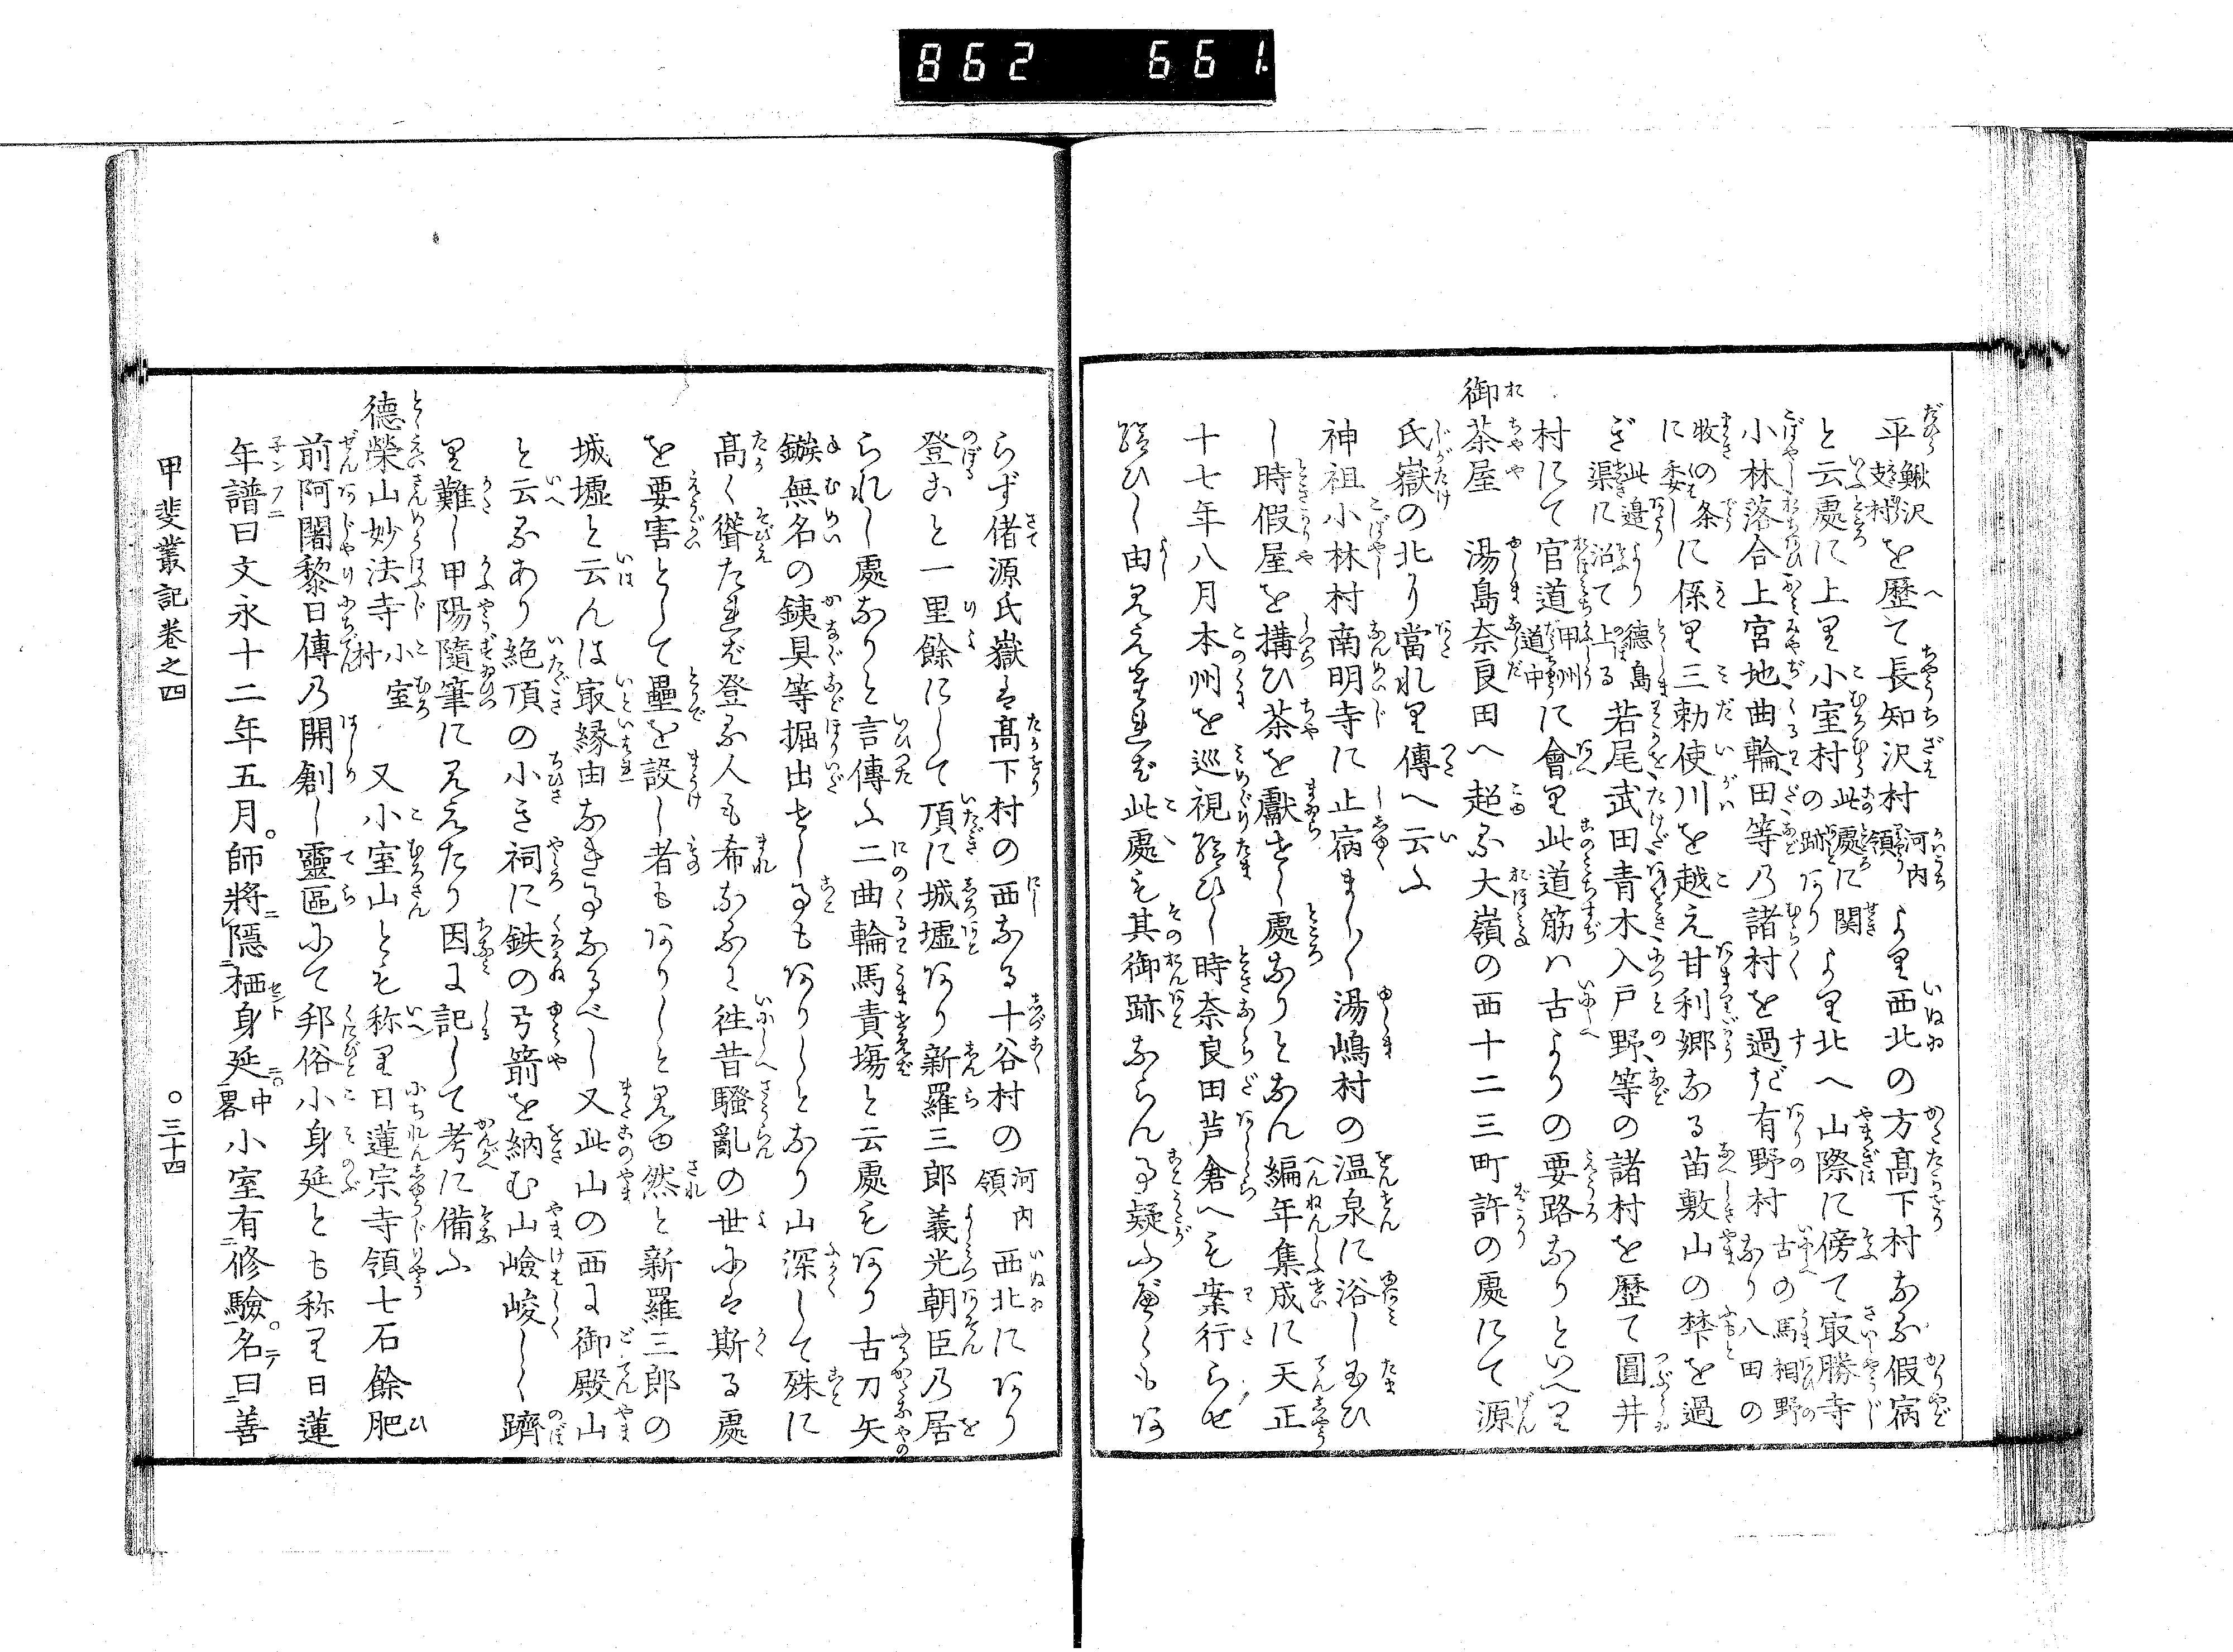 862 661
平鰍沢支村を歴て長知沢村河内領より西北の方髙下村なる假宿
と云處に上り小室村の此處に関跡ありより北へ山際に傍て最勝寺
小林落合上宮地曲輪田等乃諸村を過ぎ有野村古の馬相野なり八田の
牧の条に委しに係り三勅使川を越え甘利郷なる苗敷山の禁を過
ぎ此邊より徳島渠に沿て上る若尾武田青木入戸野等の諸村を歴て圓井
村にて官道甲州道中に會り此道筋ハ古よりの要路なりといへり
御茶屋 湯島奈良田へ超る大嶺の西十二三町許の處にて源
氏嶽の北り當れり傳へ云ふ
神祖小林村南明寺に止宿まし〱湯嶋村の温泉に浴し玉ひ
し時假屋を搆ひ茶を獻せし處なりとなん編年集成に天正
十七年八月本州を巡視給ひし時奈良田芦倉へも業行らせ
給ひし由見えたれば此處も其御跡ならん事疑ふべくもあ
らず偖源氏嶽は髙下村の西なる十谷村の河内領西北にあり
登ること一里餘にして頂に城墟あり新羅三郎義光朝臣乃居
られし處なりと言傳ふ二曲輪馬責塲と云處もあり古刀矢
鏃無名の銕具等掘出せし事もありしとなり山深して殊に
髙く聳たれば登る人も希なるに徃昔騷亂の世には斯る處
を要害として壘を設し者もありしと見ゆ然と新羅三郎の
城墟と云んは最縁由なき事なるべし又此山の西に御殿山
と云るあり絶頂の小き祠に鉄の弓箭を納む山嶮峻しく躋
り難し甲陽隨筆に見えたり因に記して考に備ふ
德榮山妙法寺小室村 又小室山とも称り日蓮宗寺領七石餘肥
前阿闍黎日傳乃開創し靈區にて邦俗小身延とも称り日蓮
年譜曰文永十二年五月。師將ニ隱ニ栖セント身延ニ。中畧小室有ニ修驗。名テ曰ニ善
甲斐叢記巻之四
○三十四